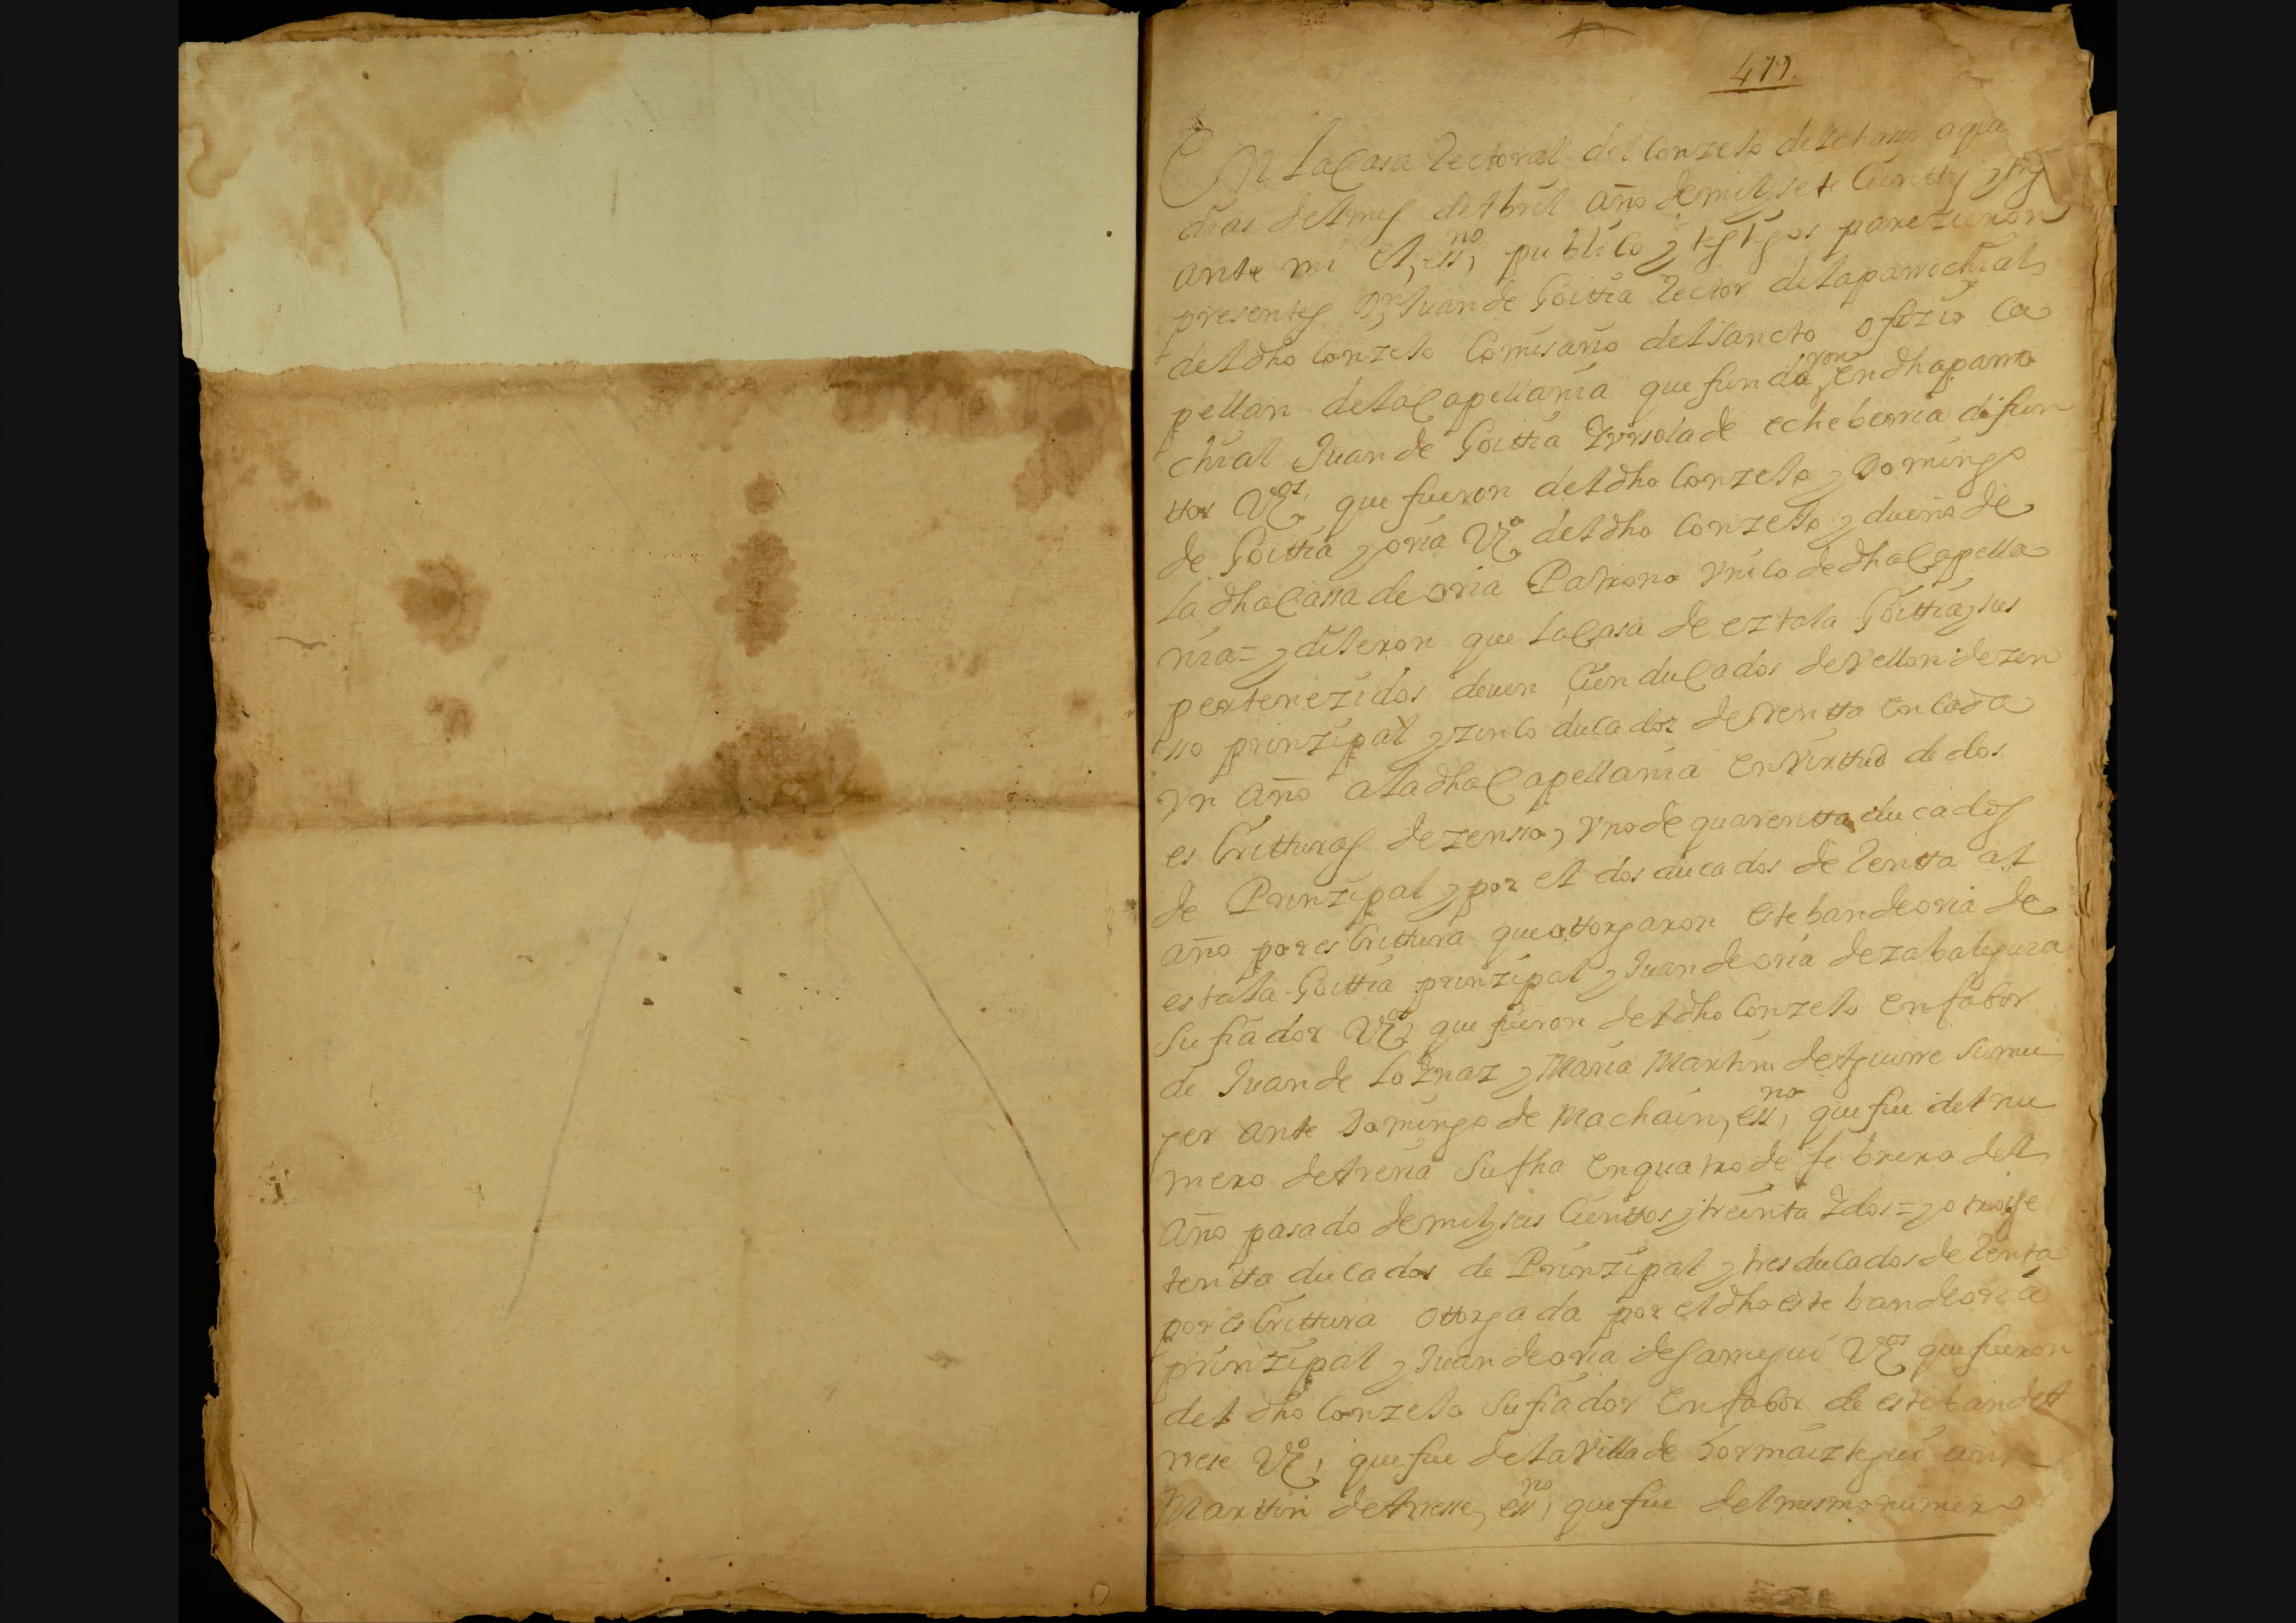 479.
En la Casa Rectoral del Conzejo de Ichasso a
dias del mes de Abril año de mil y sete Cientos y
ante mi el, ess,no publico y testigos parezieron
presentes Dn Juan de Goittia Rector de la parrochial
del dho Conzejo Comisario del Sancto ofizio Ca
pellan de la Capellania que fundaron en dha parro
chial Juan de Goittia Y Vrsola de echeberria difun
ttos Vzos que fueron del dho Conzejo y Domingo
de Goittia y oria Vzo del dho Conzejo y dueño de
la dha Cassa de oria Patrono Vnico de dha Capella
nia = y dijeron que la Casa de eztala Goittia y sus
pertenezidos deuen Cien ducados de vellon de zen
sso prinzipal y zinco ducados de rentta en cada
vn año a la dha Capellania en virttud de dos
es Critturas de zensso, vno de quarentta ducados
de Prinzipal y por el dos ducados de Rentta al
año por es Crittura que ottorgaron esteban de oria de
estala Goittia prinzipal y Juan de oria de zabalegura
su fiador Vzos que fueron del dho Conzejo en fabor
de Juan de loynaz y Maria Martin de Aguirre su mu
ger ante Domingo de Machain, essno, que fue del nu
mero de Areria su fha en quatro de febrero del
año pasado de mil y seis Cienttos y treinta Y dos = y otro se
sentta ducados de Prinzipal y tres ducados de Renta
por es Crittura ottorgada por el dho esteban de oria
prinzipal y Juan de oria de Sarregui Vzos que fueron
del dho Conzejo su fiador en fabor de esteban de A
rrese Vzo, que fue de la Villa de Gormaiztegui ante
Marttin de Arresse, essno, que fue del mismo numero